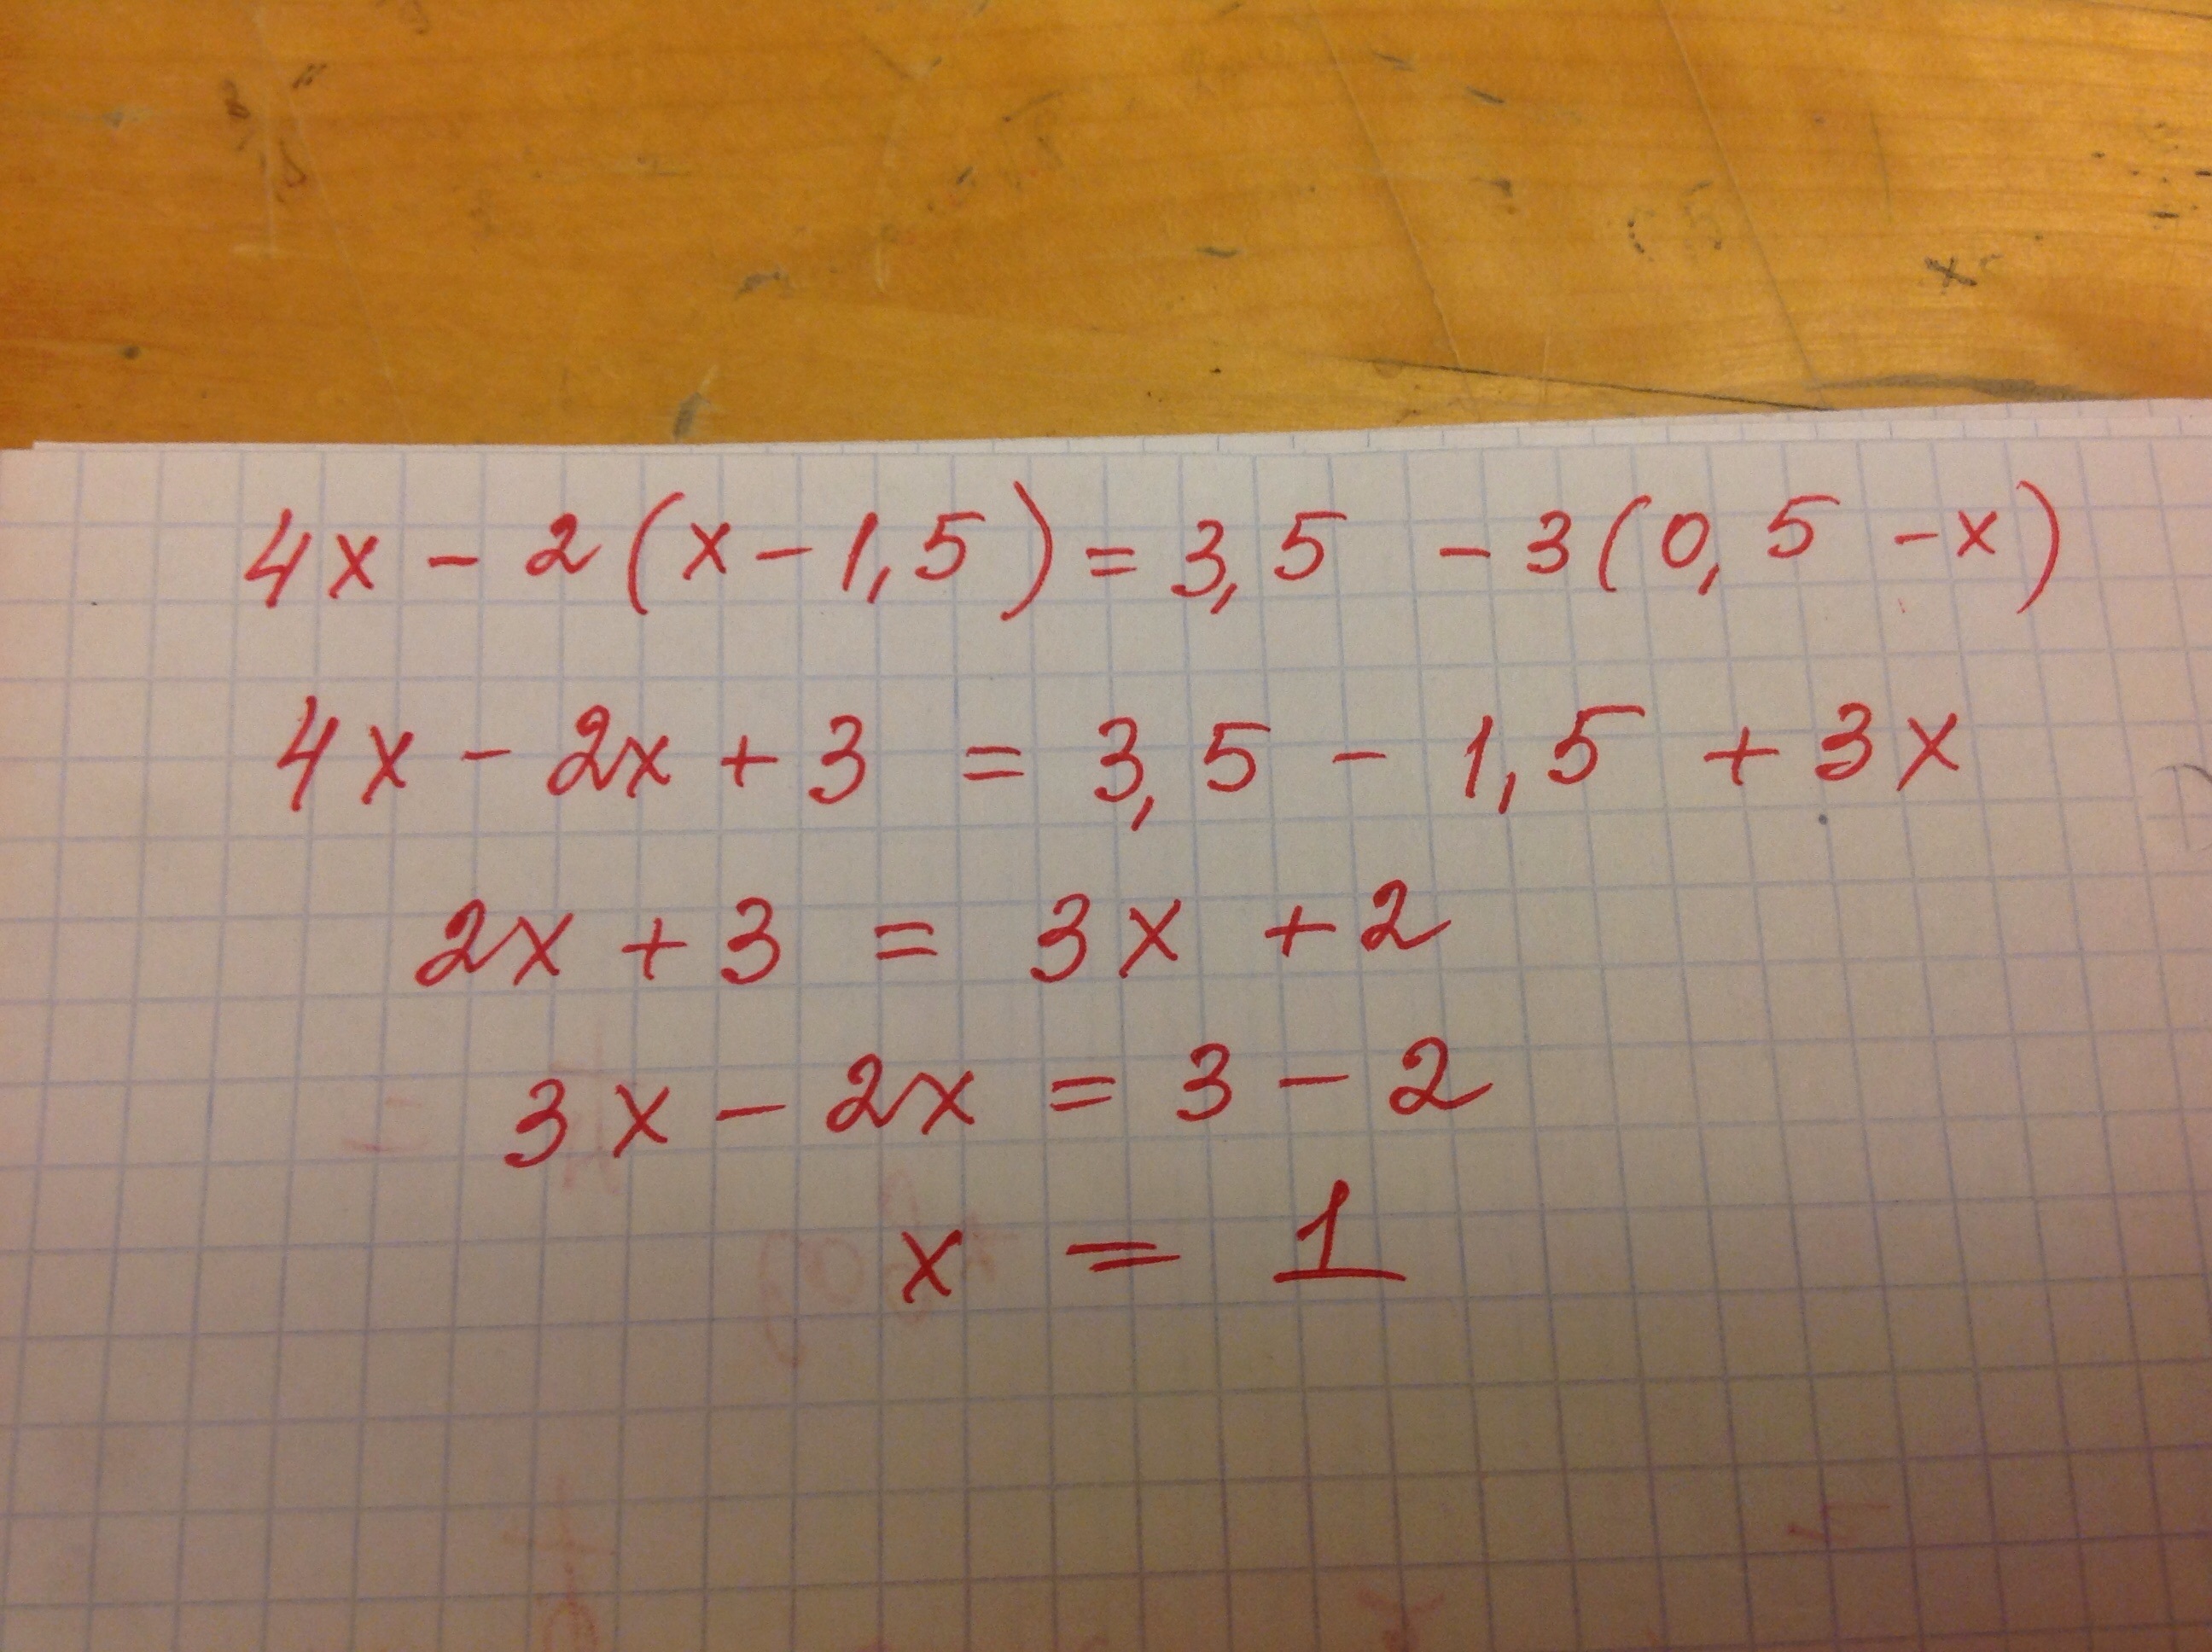 4x - 2(x - 1,5) = 3,5 - 3(0,5 - x)
4x - 2x + 3 = 3,5 - 1,5 + 3x
2x + 3 = 3x + 2
3x - 2x = 3 - 2
x = 1